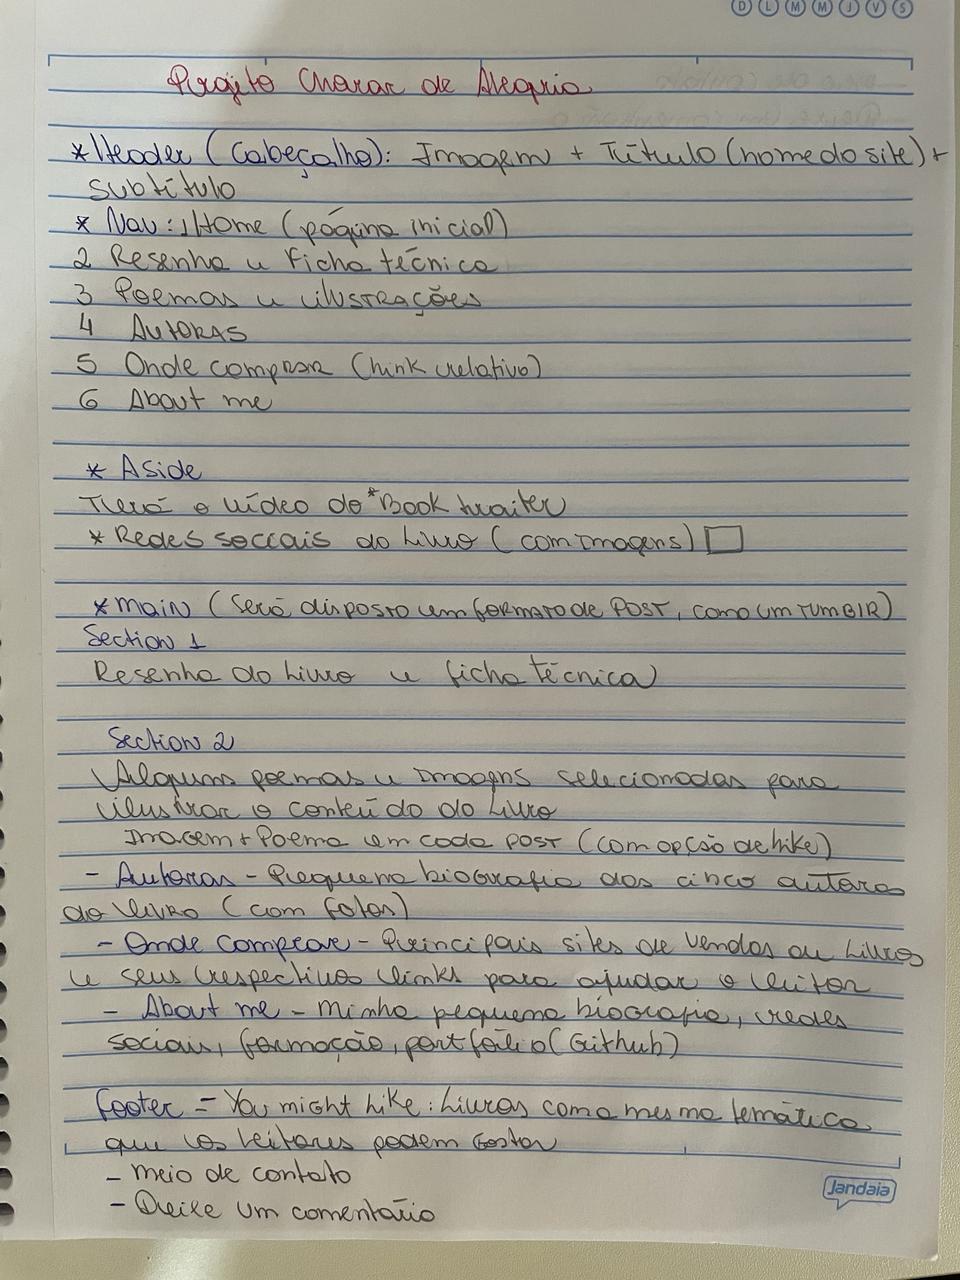 D L M M J V S
Projeto Chorar de Alegria
* Header (Cabeçalho): Imagem + Título (nome do site) +
subtítulo
* Nav: 1 Home (página inicial)
2 Resenha e Ficha técnica
3 Poemas e ilustrações
4 Autoras
5 Onde comprar (link relativo)
6 About me
* Aside
Terá o vídeo do *Book trailer
* Redes sociais do Livro (com imagens)
* main (será disposto em formato de POST, como um TUMBLR)
Section 1
Resenha do Livro e ficha técnica)
Section 2
Alguns poemas e imagens selecionadas para
ilustrar o conteúdo do Livro
Imagem + Poema em cada POST (com opção de like)
- Autoras - Pequena biografia das cinco autoras
do livro (com fotos)
- Onde comprar - Principais sites de vendas de Livros
e seus respectivos links para ajudar o leitor
- About me - Minha pequena biografia, redes
sociais, formação, portfólio (Github)
footer - You might like: Livros com a mesma temática
que os leitores podem gostar
- meio de contato
- Deixe um comentário
Jandaia